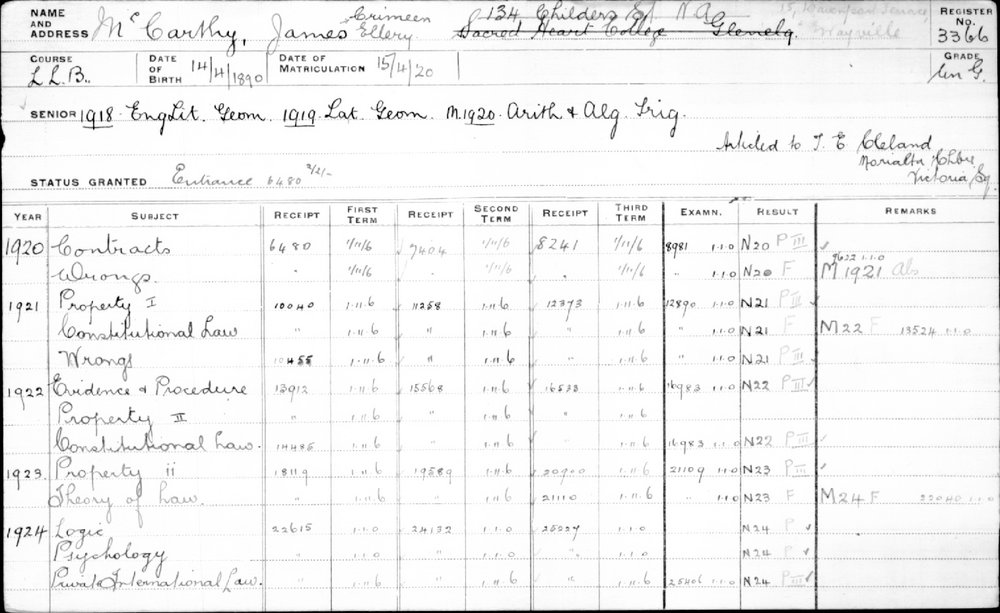 NAME AND ADDRESS McCarthy, James Crimeen Ellery. 134 Childers St N.A. Sacred Heart College Glenelg Wayville REGISTER No. 3366
COURSE L L.B.. DATE OF BIRTH 14/4/1890 DATE OF MATRICULATION 15/4/20 GRADE
SENIOR 1918. Eng Lit. Geom. 1919. Lat. Geom. M.1920. Arith & Alg. Trig.
Articled to T. E Cleland
Morialta Chbrs
Victoria Sq.
STATUS GRANTED Entrance 6480 2/2/-
YEAR SUBJECT RECEIPT FIRST TERM RECEIPT SECOND TERM RECEIPT THIRD TERM EXAMN. RESULT REMARKS
1920 Contracts 6480 1/11/6 7404 1/11/6 8241 1/11/6 8981 1.1.0 N20 P III
Wrongs. " 1/11/6 " 1/11/6 " 1/11/6 " 1.1.0 N20 F M 1921 9632 1.1.0 Abs
1921 Property I 10040 1.11.6 11258 1.11.6 12373 1.11.6 12890 1.1.0 N21 P III
Constitutional Law " 1.11.6 " 1.11.6 " 1.11.6 " 1.1.0 N21 F M22 F 13524 1.1.0
Wrongs 10455 1.11.6 " 1.11.6 " 1.11.6 " 1.1.0 N21 P III
1922 Evidence & Procedure 13912 1.11.6 15568 1.11.6 16533 1.11.6 16983 1.1.0 N22 P III
Property II " 1.11.6 " 1.11.6 " 1.11.6
Constitutional Law. 14485 1.11.6 " 1.11.6 " 1.11.6 16983 1.1.0 N22 P III
1923 Property ii 18119 1.11.6 19589 1.11.6 20900 1.11.6 21109 1.1.0 N23 P III
Theory of Law. " 1.11.6 " 1.11.6 21110 1.11.6 " 1.1.0 N23 F M24 F 22040 1.1.0
1924 Logic 22615 1.1.0 24132 1.1.0 25227 1.1.0 N24 P
Psychology " 1.1.0 " 1.1.0 " 1.1.0 N24 P
Private International Law. " 1.11.6 " 1.11.6 " 1.11.6 25406 1.1.0 N24 P III